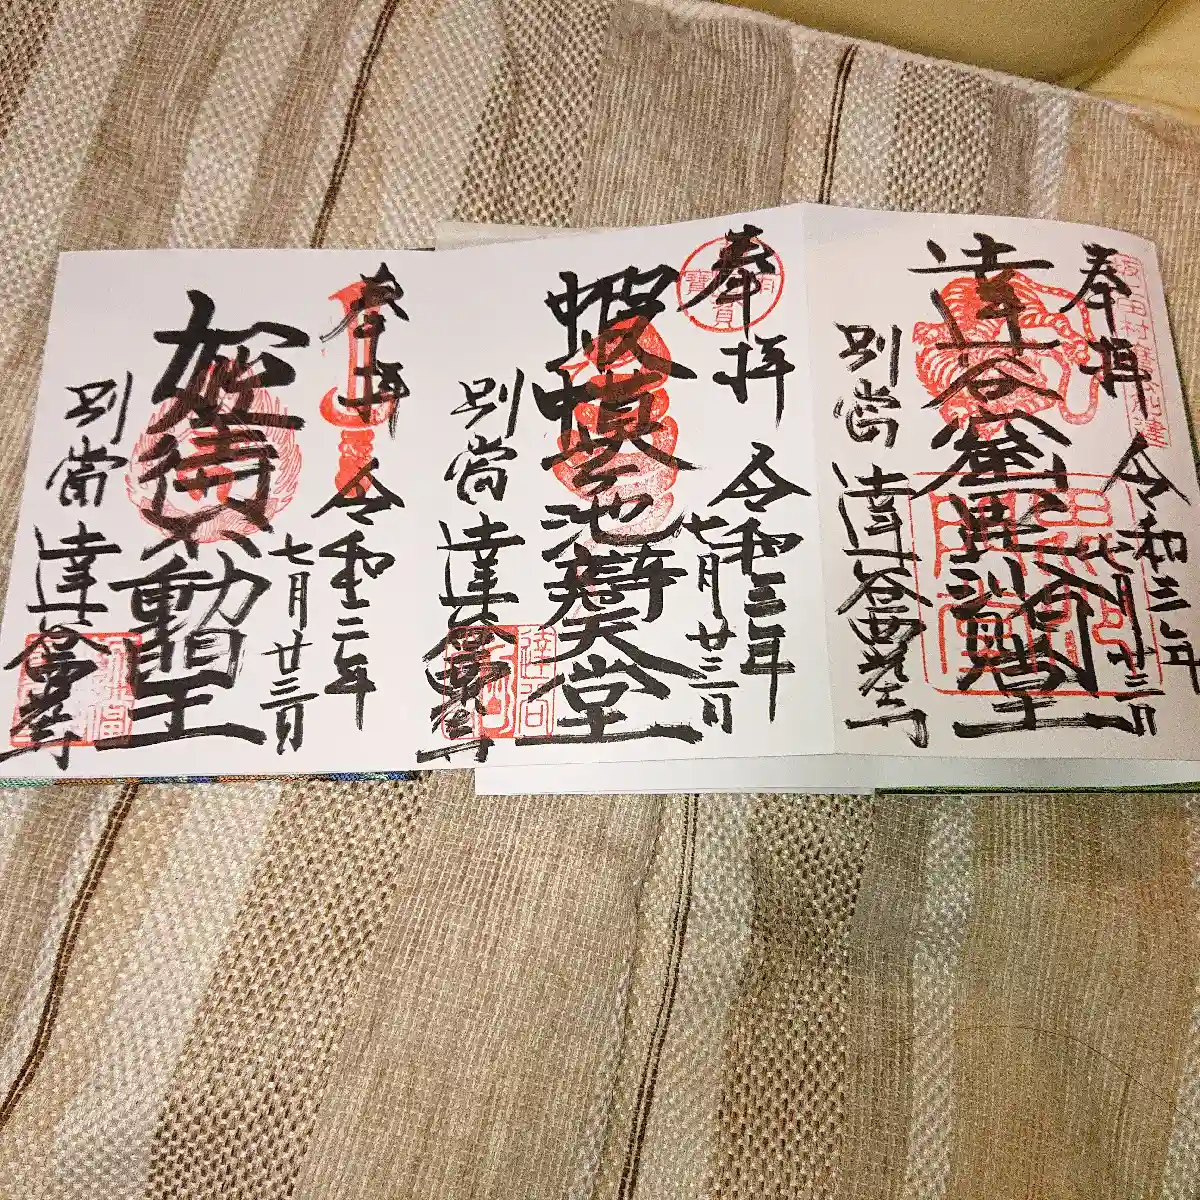 奉拝
令和三年
七月廿三日
達谷窟毘沙門堂
別當
達谷西光寺
奉拝
令和三年
七月廿三日
蝦蟆ヶ池辯天堂
別當
達谷西光寺
奉拝
令和三年
七月廿三日
姫待不動
別當
達谷西光寺